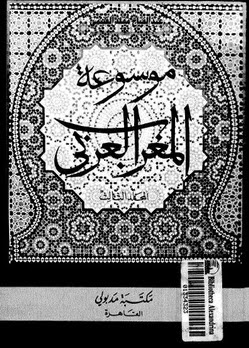 موسوعة
المغرب العربي
المجلد الثالث
مكتبة مدبولي
القاهرة
Bibliotheca Alexandrina